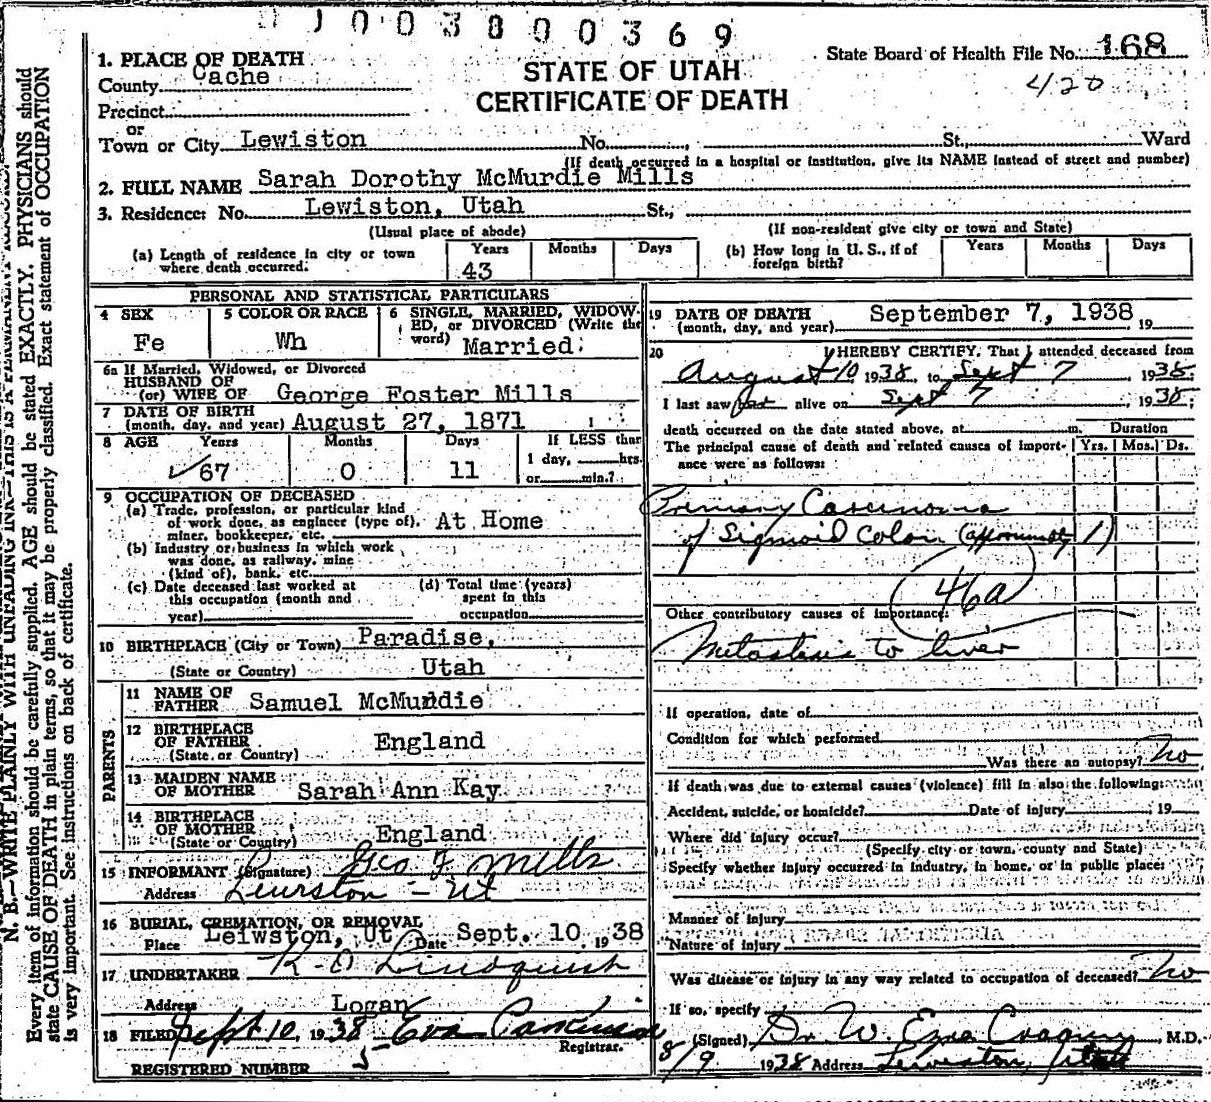 003800369
State Board of Health File No. 168
420
STATE OF UTAH
CERTIFICATE OF DEATH
1. PLACE OF DEATH
County Cache
Precinct
or
Town or City Lewiston No. , St., Ward
(If death occurred in a hospital or institution, give its NAME instead of street and number)
2. FULL NAME Sarah Dorothy McMurdie Mills
3. Residence: No. Lewiston, Utah St.,
(Usual place of abode) (If non-resident give city or town and State)
(a) Length of residence in city or town where death occurred. Years 43 Months Days
(b) How long in U. S., if of foreign birth? Years Months Days
PERSONAL AND STATISTICAL PARTICULARS
4 SEX Fe
5 COLOR OR RACE Wh
6 SINGLE, MARRIED, WIDOWED, or DIVORCED (Write the word) Married
6a If Married, Widowed, or Divorced
HUSBAND OF
(or) WIFE OF George Foster Mills
7 DATE OF BIRTH
(month, day, and year) August 27, 1871
8 AGE Years 67 Months 0 Days 11
If LESS than
1 day, hrs.
or min.?
9 OCCUPATION OF DECEASED
(a) Trade, profession, or particular kind
of work done, as engineer (type of), At Home
miner, bookkeeper, etc.
(b) Industry or business in which work
was done, as railway, mine
(kind of), bank, etc.
(c) Date deceased last worked at
this occupation (month and
year)
(d) Total time (years)
spent in this
occupation
10 BIRTHPLACE (City or Town) Paradise,
(State or Country) Utah
PARENTS
11 NAME OF
FATHER Samuel McMurdie
12 BIRTHPLACE
OF FATHER England
(State or Country)
13 MAIDEN NAME
OF MOTHER Sarah Ann Kay
14 BIRTHPLACE
OF MOTHER England
(State or Country)
15 INFORMANT (Signature) Geo F. Mills
Address Lewiston - Ut
16 BURIAL, CREMATION, OR REMOVAL
Place Leiwston, Ut Date Sept. 10, 1938
17 UNDERTAKER Lindquist
Address Logan
18 FILED Sept 10, 1938 Eva Parkinson
Registrar.
REGISTERED NUMBER 5
19 DATE OF DEATH
(month, day, and year) September 7, 1938, 19
20 I HEREBY CERTIFY, That I attended deceased from
August 10 1938, to Sept 7, 1938.
I last saw her alive on Sept 7, 1938,
death occurred on the date stated above, at m.
The principal cause of death and related causes of importance were as follows:
Duration
Yrs. Mos. Ds.
Primary Carcinoma
of Sigmoid Colon (approximately 1)
46a
Other contributory causes of importance:
Metastasis to liver
If operation, date of
Condition for which performed
Was there an autopsy? No
If death was due to external causes (violence) fill in also the following:
Accident, suicide, or homicide? Date of injury 19
Where did injury occur?
(Specify city or town, county and State)
Specify whether injury occurred in industry, in home, or in public place:
Manner of injury
Nature of injury
Was disease or injury in any way related to occupation of deceased? No
If so, specify
(Signed) Dr. W. Ezra Cragun, M.D.
8/9 1938 Address Lewiston, Utah
N. B.—WRITE PLAINLY WITH UNFADING INK—THIS IS A PERMANENT RECORD.
Every item of information should be carefully supplied. AGE should be stated EXACTLY. PHYSICIANS should
state CAUSE OF DEATH in plain terms, so that it may be properly classified. Exact statement of OCCUPATION
is very important. See instructions on back of certificate.